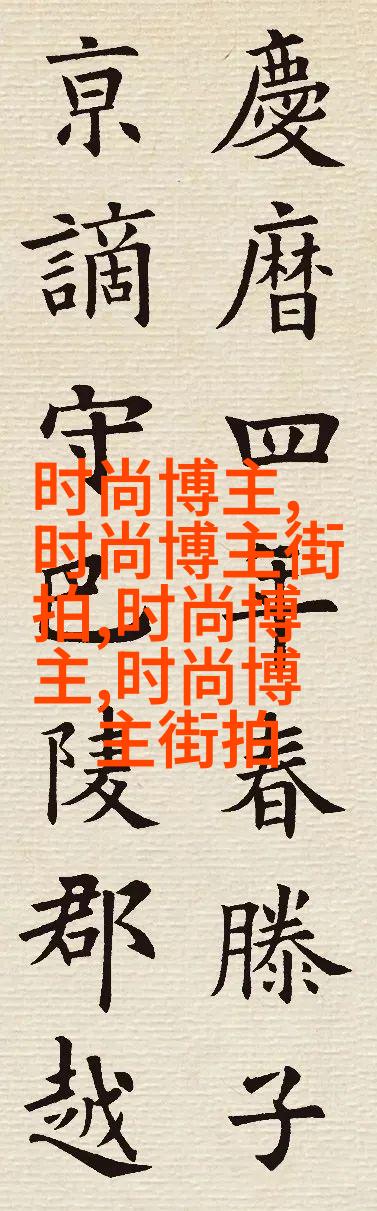 慶暦四年春滕子
亰謫守巴陵郡越
时尚博主,
时尚博主街
拍,时尚博
主,时尚博
主街拍